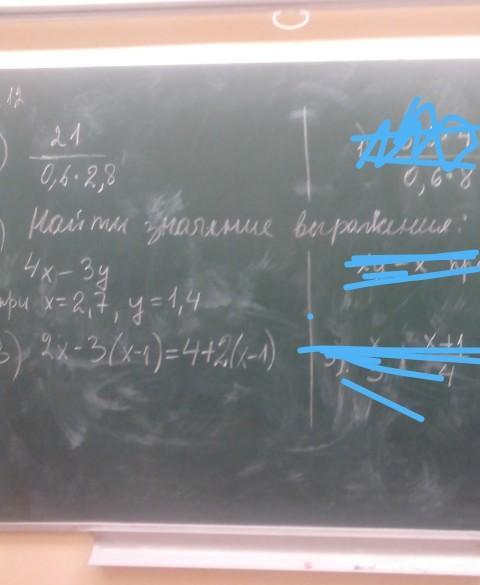 .12
) 21 / 0,6·2,8
0,6·8
) Найти значение выражения:
4x-3y
при x=2,7, y=1,4
3) 2x-3(x-1)=4+2(x-1)
x+1 / 4